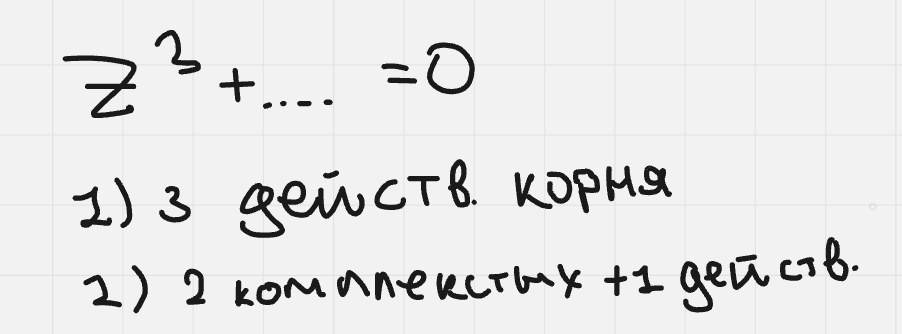 z³ + ..... = 0
1) 3 действ. корня
2) 2 комплекстых + 1 действ.